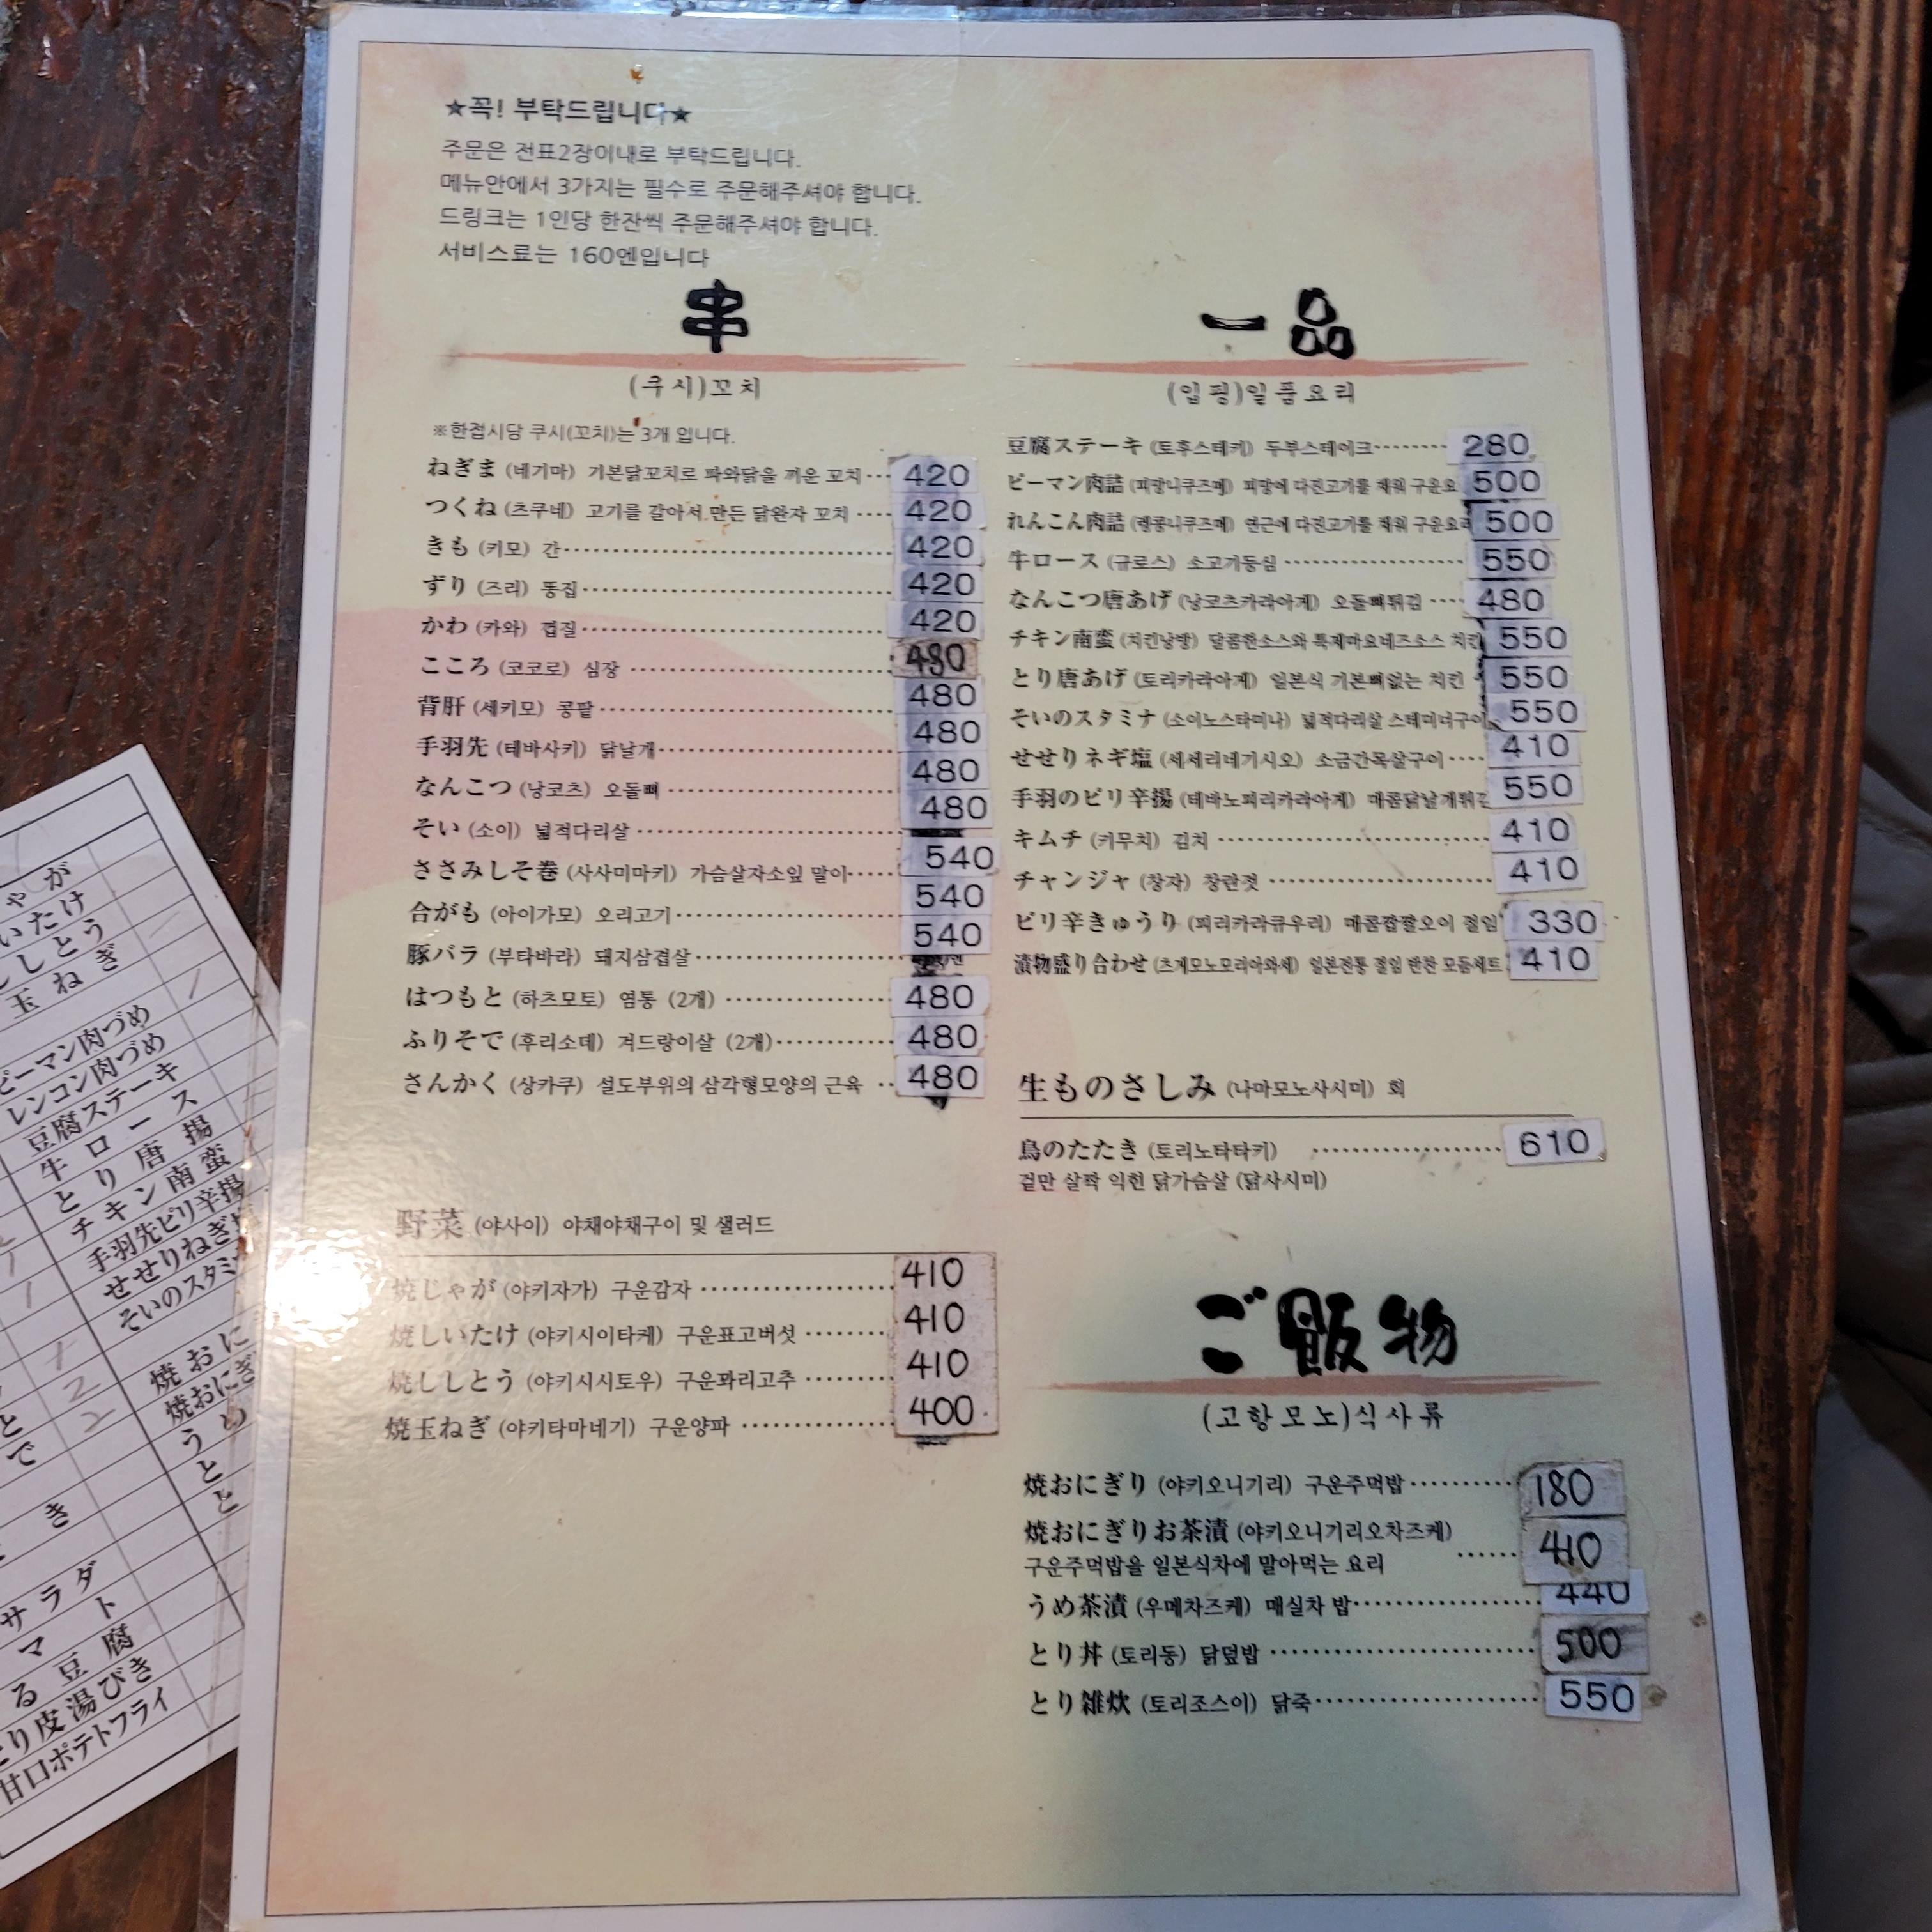 ★꼭! 부탁드립니다★
주문은 전표2장이내로 부탁드립니다.
메뉴안에서 3가지는 필수로 주문해주셔야 합니다.
드링크는 1인당 한잔씩 주문해주셔야 합니다.
서비스료는 160엔입니다
串
(쿠시)꼬치
※한접시당 쿠시(꼬치)는 3개 입니다.
ねぎま (네기마) 기본닭꼬치로 파와닭을 끼운 꼬치 420
つくね (츠쿠네) 고기를 갈아서 만든 닭완자 꼬치 420
きも (키모) 간 420
ずり (즈리) 똥집 420
かわ (카와) 껍질 420
こころ (코코로) 심장 480
背肝 (세키모) 콩팥 480
手羽先 (테바사키) 닭날개 480
なんこつ (낭코츠) 오돌뼈 480
そい (소이) 넓적다리살 480
ささみしそ巻 (사사미마키) 가슴살자소잎 말이 540
合がも (아이가모) 오리고기 540
豚バラ (부타바라) 돼지삼겹살 540
はつもと (하츠모토) 염통 (2개) 480
ふりそで (후리소데) 겨드랑이살 (2개) 480
さんかく (상카쿠) 설도부위의 삼각형모양의 근육 480
野菜 (야사이) 야채야채구이 및 샐러드
焼じゃが (야키자가) 구운감자 410
焼しいたけ (야키시이타케) 구운표고버섯 410
焼ししとう (야키시시토우) 구운꽈리고추 410
焼玉ねぎ (야키타마네기) 구운양파 400
一品
(입핑)일품요리
豆腐ステーキ (토후스테키) 두부스테이크 280
ピーマン肉詰 (피망니쿠즈메) 피망에 다진고기를 채워 구운요 500
れんこん肉詰 (렝콩니쿠즈메) 연근에 다진고기를 채워 구운요리 500
牛ロース (규로스) 소고기등심 550
なんこつ唐あげ (낭코츠카라아게) 오돌뼈튀김 480
チキン南蛮 (치킨남방) 달콤한소스와 특제마요네즈소스 치킨 550
とり唐あげ (토리카라아게) 일본식 기본뼈없는 치킨 550
そいのスタミナ (소이노스타미나) 넓적다리살 스테미너구이 550
せせりネギ塩 (세세리네기시오) 소금간목살구이 410
手羽のピリ辛揚 (테바노피리카라아게) 매콤닭날개튀김 550
キムチ (키무치) 김치 410
チャンジャ (창자) 창란젓 410
ピリ辛きゅうり (피리카라큐우리) 매콤짭짤오이 절임 330
漬物盛り合わせ (츠게모노모리아와세) 일본전통 절임 반찬 모듬세트 410
生ものさしみ (나마모노사시미) 회
鳥のたたき (토리노타타키) 610
겉만 살짝 익힌 닭가슴살 (닭사시미)
ご飯物
(고항모노)식사류
焼おにぎり (야키오니기리) 구운주먹밥 180
焼おにぎりお茶漬 (야키오니기리오차즈케) 410
구운주먹밥을 일본식차에 말아먹는 요리
うめ茶漬 (우메차즈케) 매실차 밥 440
とり丼 (토리동) 닭덮밥 500
とり雑炊 (토리조스이) 닭죽 550
ゃが
いたけ
ししとう
玉ねぎ
ピーマン肉づめ
レンコン肉づめ
豆腐ステーキ
牛ロース
とり唐揚
チキン南蛮
手羽先ピリ辛揚
せせりねぎ塩
そいのスタミ
焼おに
焼おにぎ
う
と
と
で
き
サラダ
マト
る豆腐
とり皮湯びき
甘口ポテトフライ